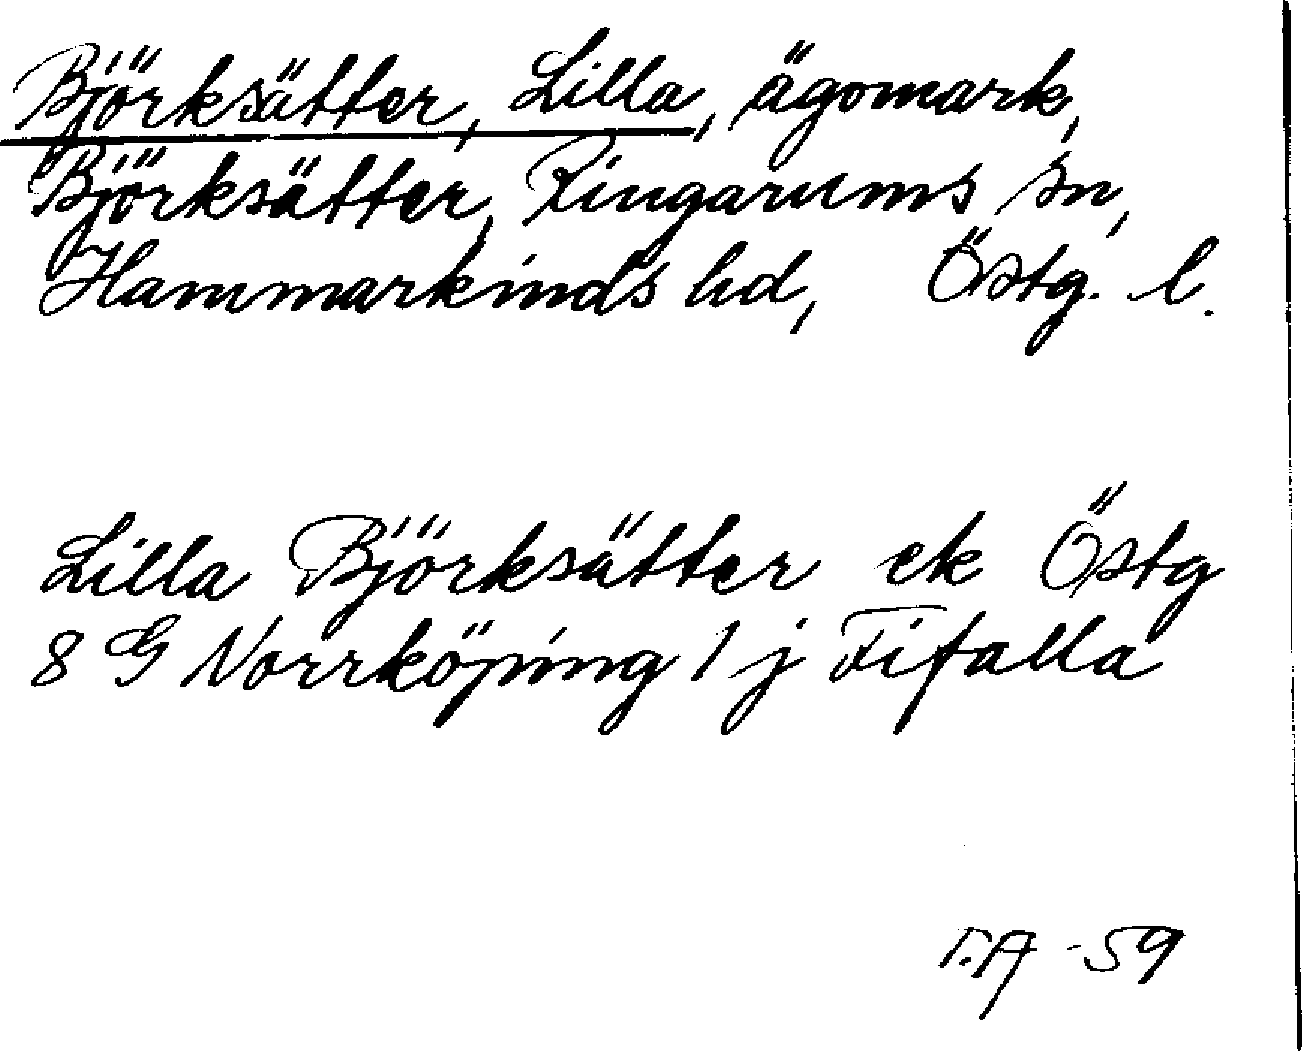 Björksätter, Lilla, ägomark,
Björksätter, Ringarums sn,
Hammarkinds hd, Östg. l.
Lilla Björksätter ek Östg
8 G Norrköping 1 j Fifalla
F.A -59